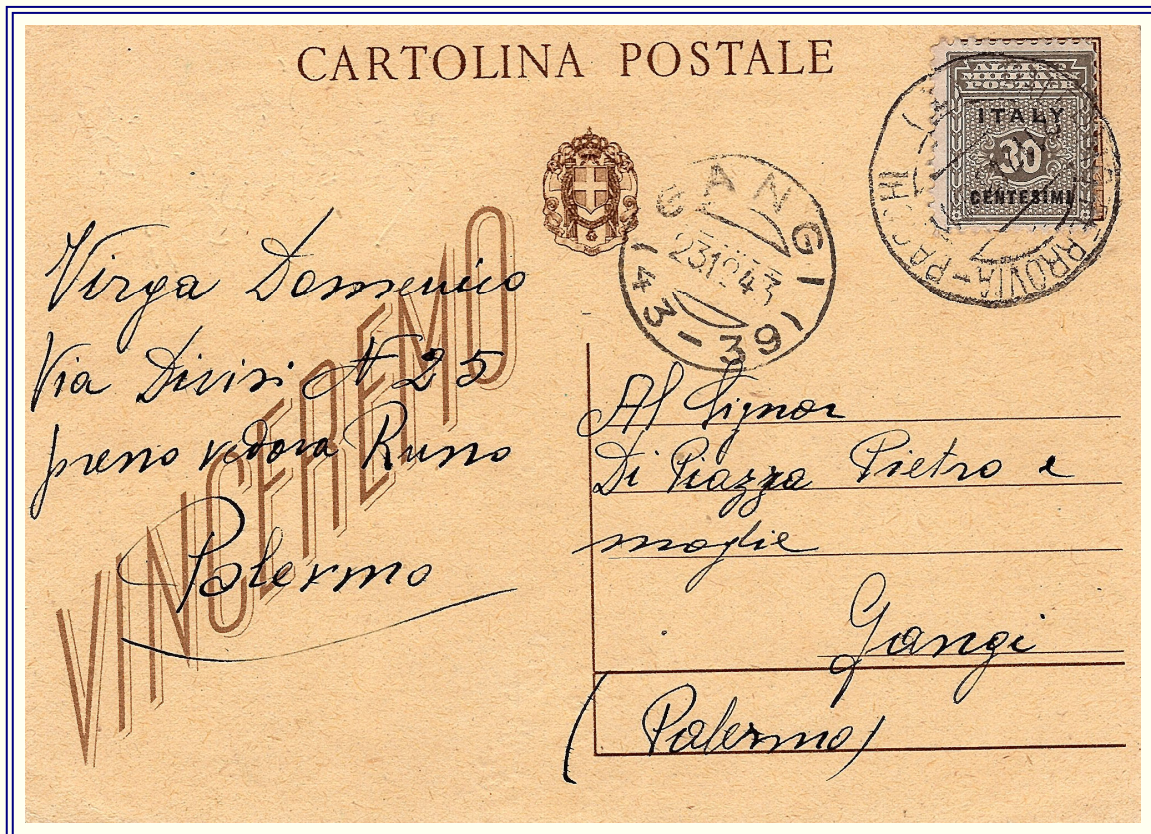 CARTOLINA POSTALE
ALLIED
MILITARY
POSTAGE
ITALY
30
CENTESIMI
FERROVIA-PACCHI
GANGI
23 12 43
(43-39)
VINCEREMO
Virga Domenico
Via Divisi N 25
presso vedova Russo
Palermo
Al Signor
Di Piazza Pietro e
moglie
Gangi
(Palermo)